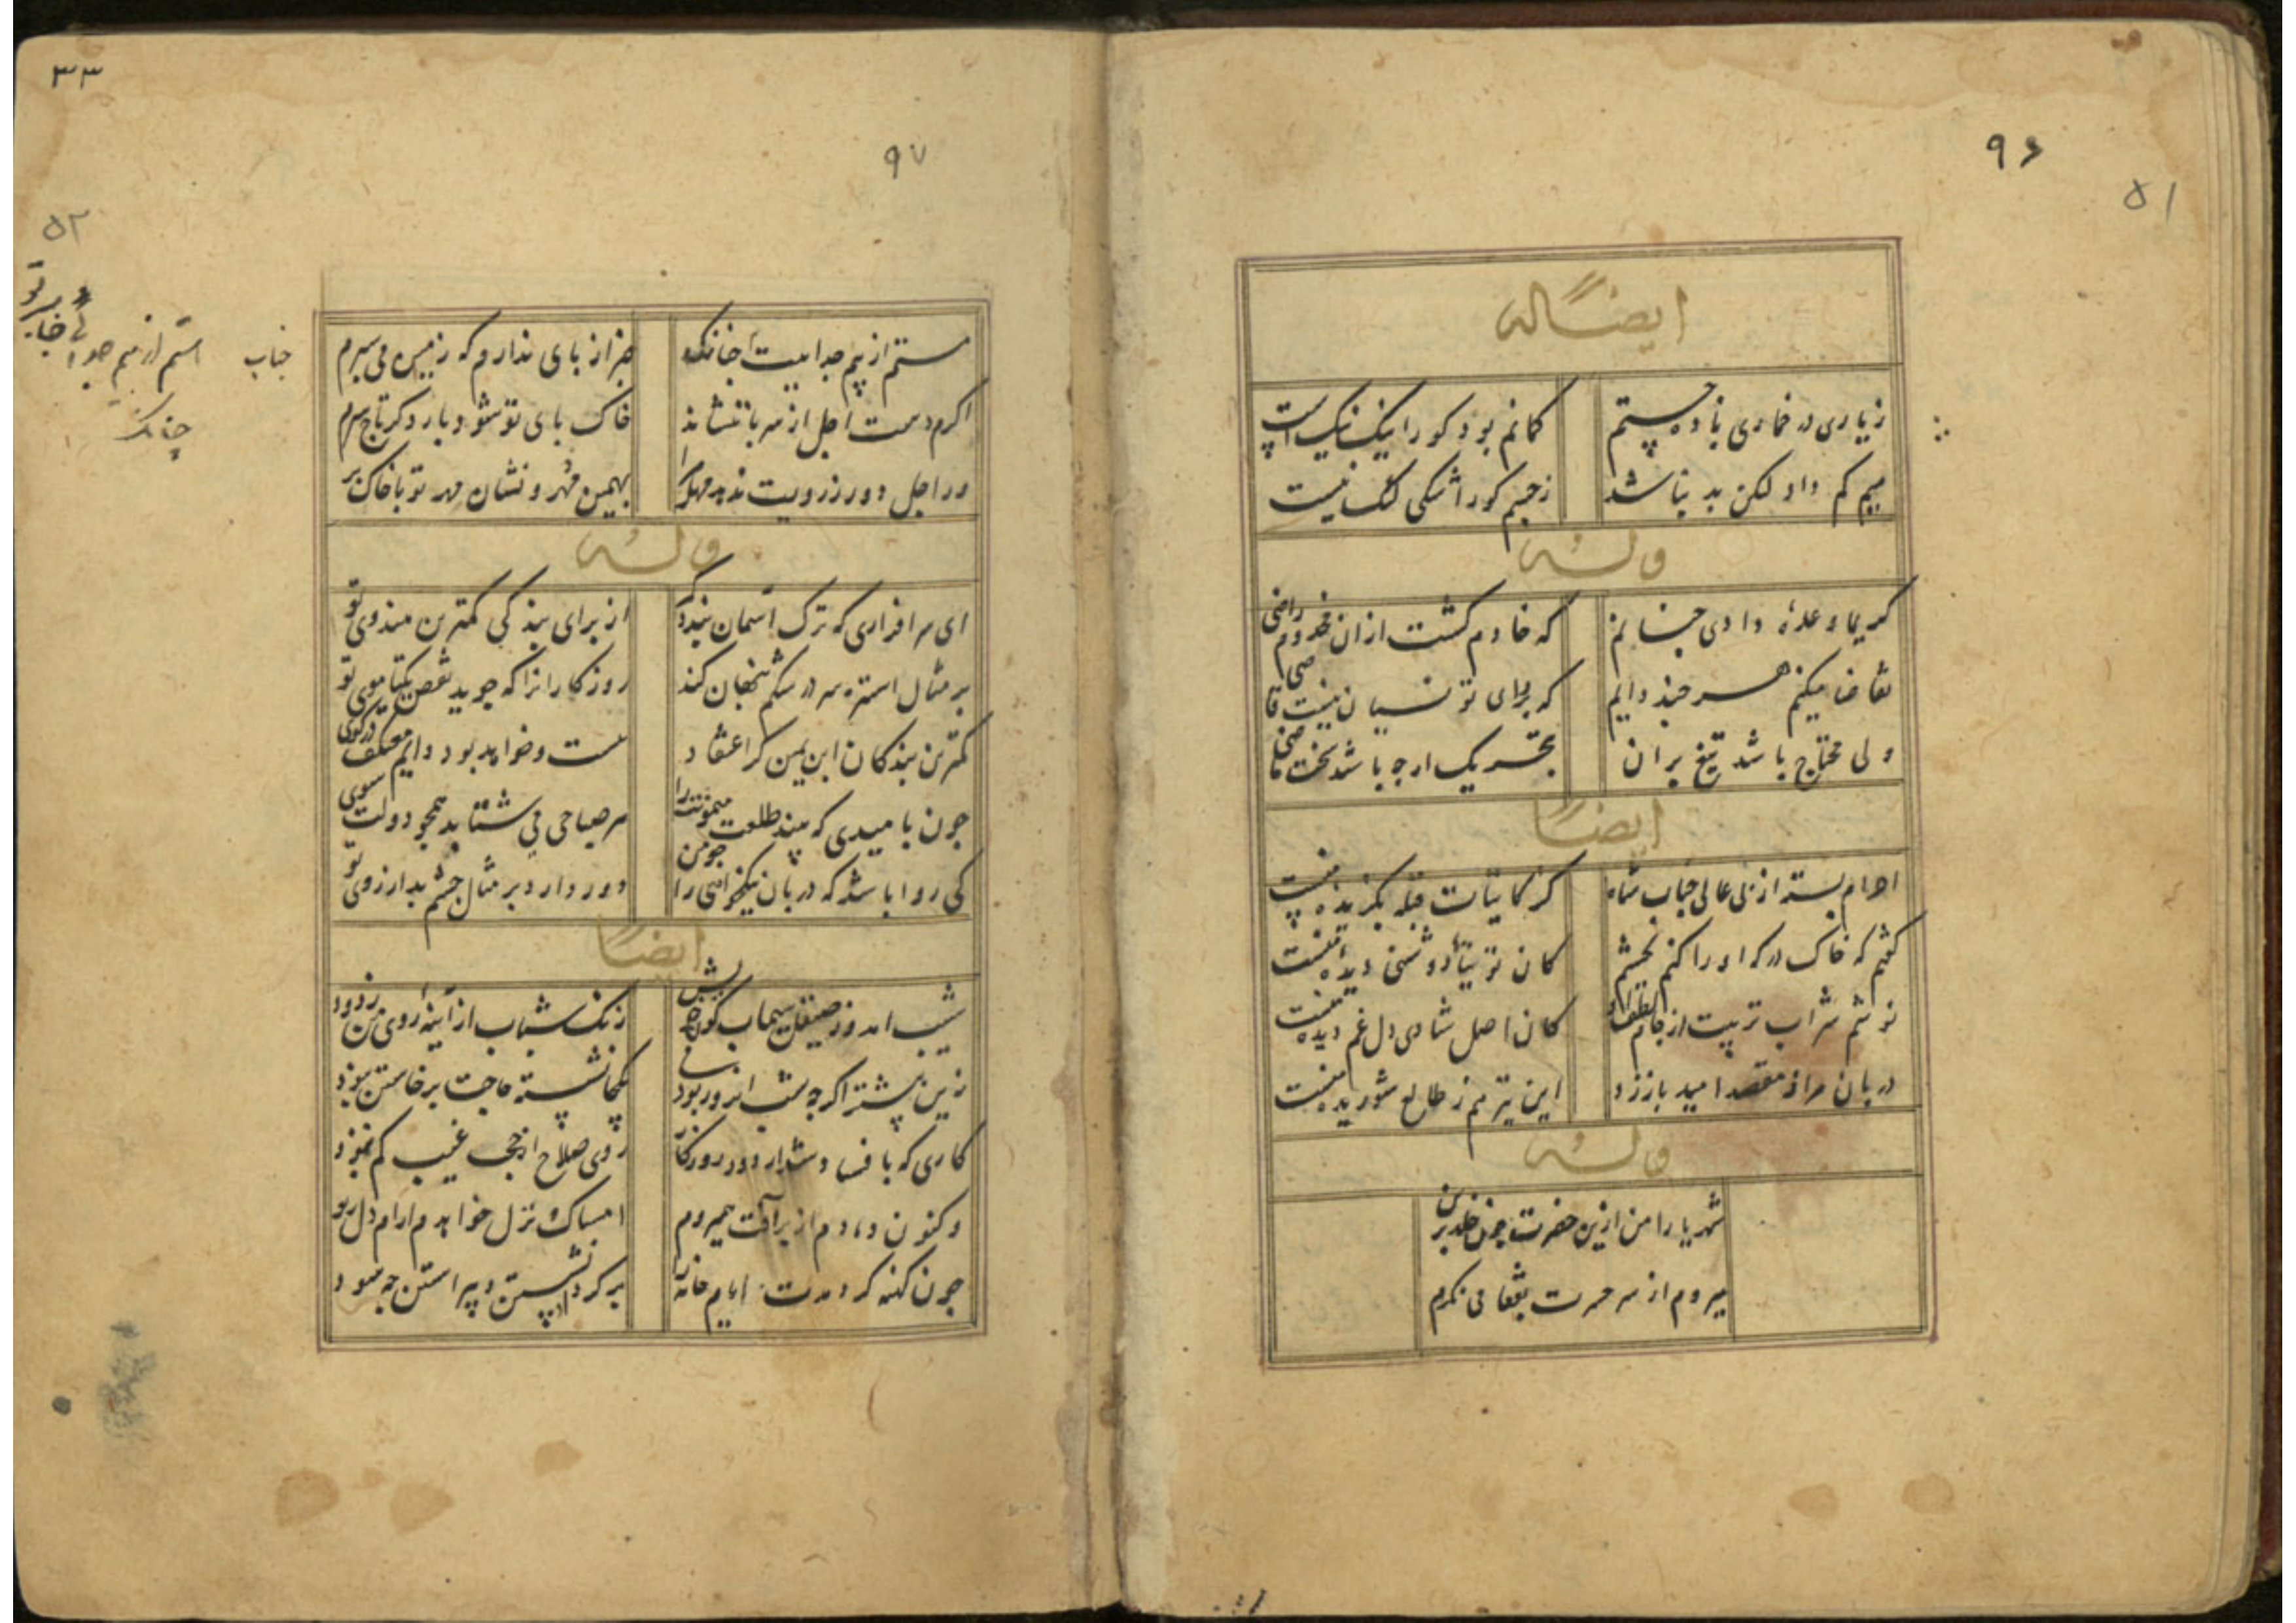 ۹۶
۵۱
ایضاً له
زیاری در خماری باده جستم
کمانم بود کو را نیک نیک است
میم کم داد لکن بد نباشد
زجیم کور اشکی لنک نیست
وله
کریما وعدهٔ دادی جنانم
که خادم کشت ازان مخدوم راضی
تقاضا میکنم هر جند دانم
که برای تو نسیان نیست قاضی
ولی محتاج باشد تیغ بران
بتحریک ارجه باشد سخت ماضی
ایضاً
احرام بسته از پی عالی جناب شاه
کز کاینات قبله بکزیدهٔ منست
کفتم که خاک درکه او را کنم بجشم
کان توتیای روشنی دیدهٔ منست
نوشم شراب تربیت از جام لطف او
کان اصل شادی دل غم دیده منست
دربان مرا ز مقصد امید باز زد
این نیز هم ز طالع شوریده منست
وله
شهریارا من ازین حضرت جون خلد برین
میروم از سر حسرت بقفا می نکرم
۳۳
۹۷
۵۲
جناب
جنانک
ستم از بیم جداییت جنانک
خبر از بای ندارم که زمین می سبرم
اکرم دست اجل از سر با ننشاند
خاک بای تو شود بار دکر تاج سرم
ور اجل دور ز رویت ندهد مهل مرا
بهمین مهر و نشان مهر تو با خاک برم
وله
ای سر افرازی که ترک آسمان بندد کمر
از برای بندکی کمترین هندوی تو
بر مثال استره سر در شکم بنهان کند
روزکار انرا که جوید نقص یکتا موی تو
کمترین بندکان ابن یمین کز اعتقاد
هست و خواهد بود دایم معتکف در کوی تو
جون بامیدی که بیند طلعت میمونت را
هر صباحی می شتابد همجو دولت سوی تو
کی روا باشد که دربان نیکخواهی را جو من
دور دارد بر مثال جشم بد از روی تو
ایضاً
شیب امد و ز صیقل سیماب کون خویش
زنک شباب از آینهٔ روی من زدود
زین بیشتر اکر جه شب
نشسته حاجت برخاستن نبود
کاری که با فساد شد از دور روزکار
روی صلاح از حجب غیب کم نمود
وکنون دمادم از بر آفت همیروم
امساک و نزل خواهم و ارام دل
جون کهنه کرد مدت ایام خانه را
بر کرد او نشستن و بیراستن جه سود